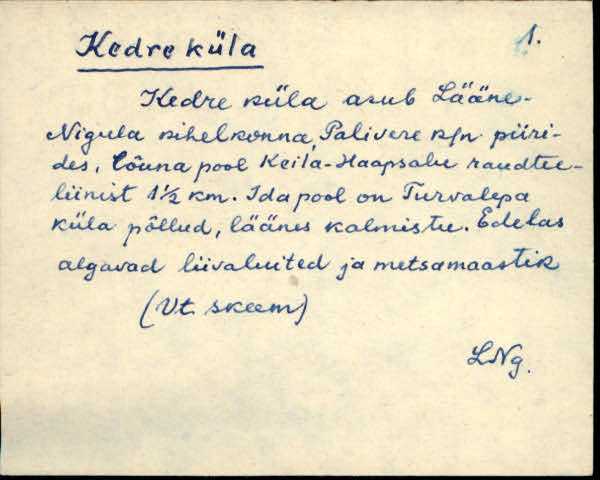 Kedre küla
1.
Kedre küla asub Lääne-
Nigula kihelkonna, Palivere k/n piiri-
des, lõuna pool Keila-Haapsalu raudtee-
liinist 1½ km. Ida pool on Turvalepa
küla põllud, läänes kalmistu. Edelas
algavad liivaluited ja metsamaastik
(Vt. skeem)
LNg.